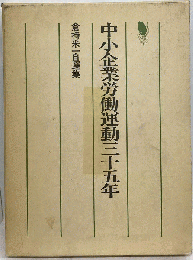 中小企業労働運動三十五年
倉持米一自選集